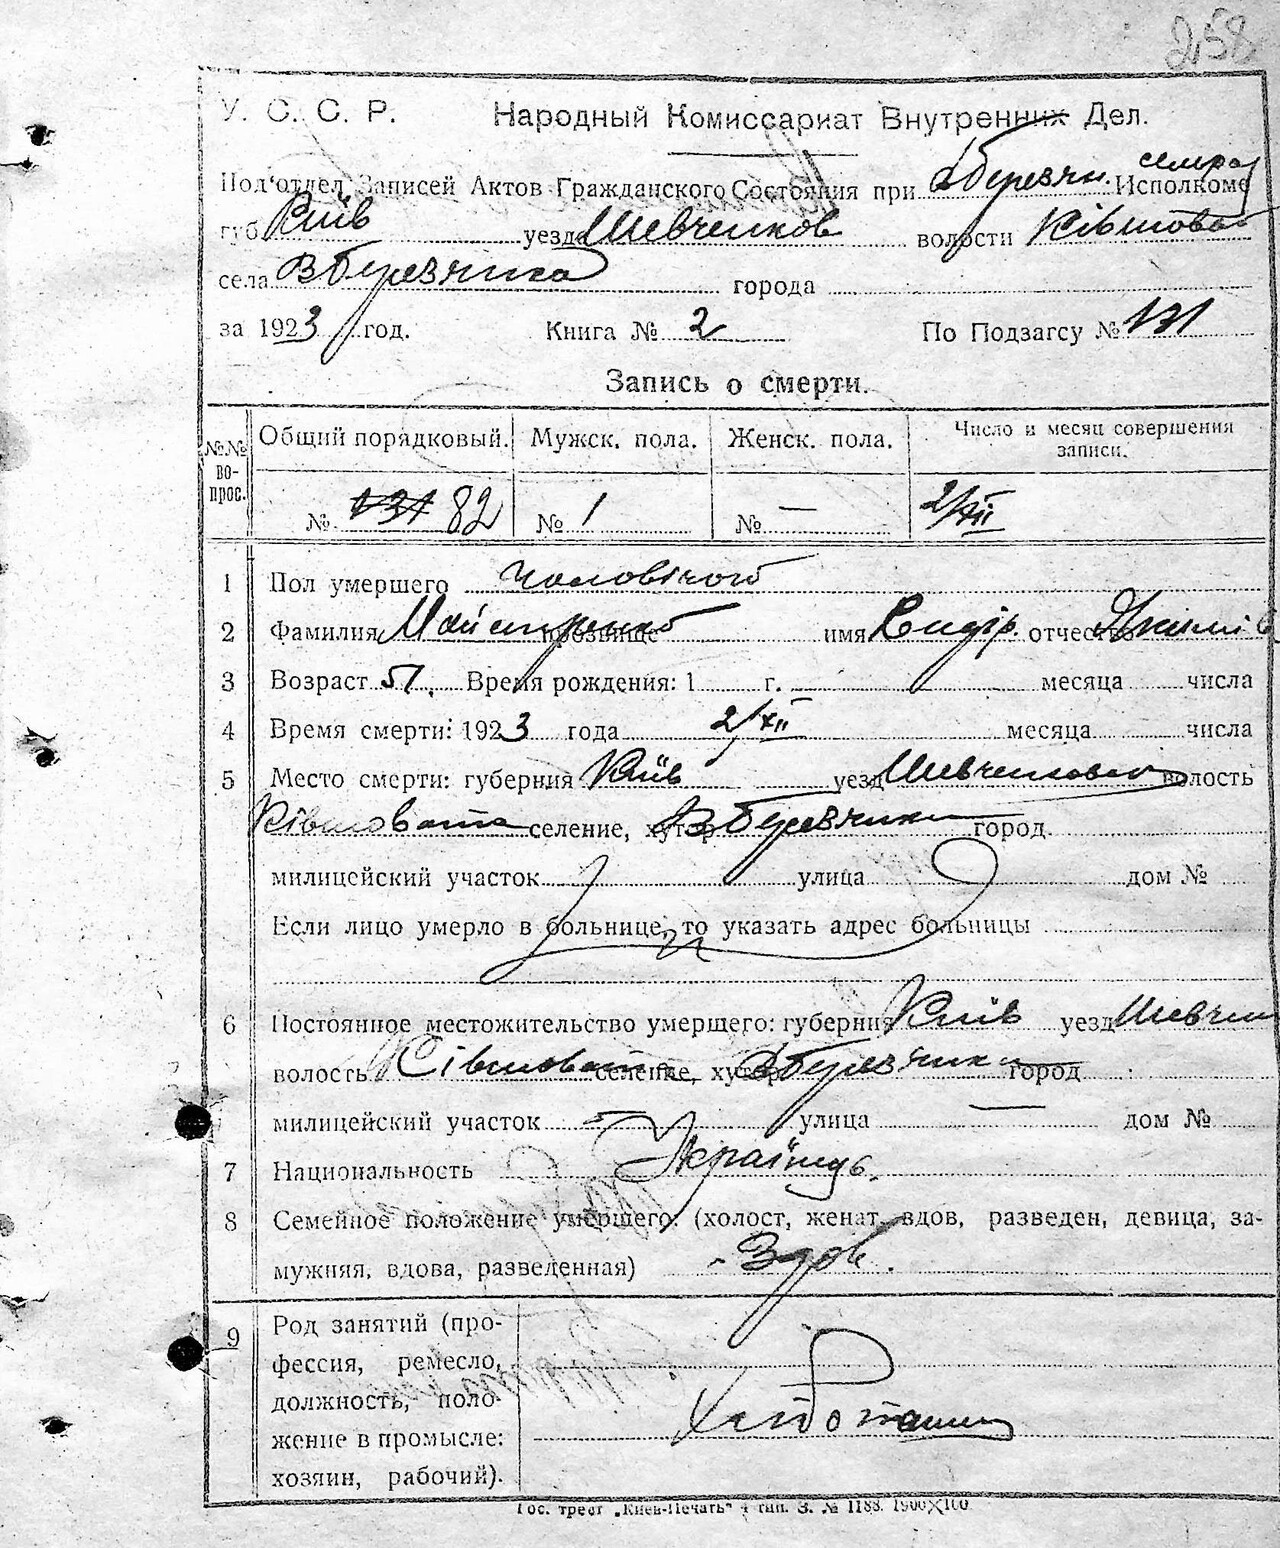 258
У. С. С. Р. Народный Комиссариат Внутренних Дел.
Под'отдел Записей Актов Гражданского Состояния при Исполкоме
губ. Київ уезда Шевченков волости
села города
за 1923 год. Книга № 2 По Подзагсу № 131
Запись о смерти.
№№ вопрос. Общий порядковый. Мужск. пола. Женск. пола. Число и месяц совершения записи.
№ 131 82 № 1 № — 2/XII
1 Пол умершего чоловічої
2 Фамилия Майстренко прозвище имя отчество
3 Возраст 51. Время рождения: 1 г. месяца числа
4 Время смерти: 1923 года 2/XII месяца числа
5 Место смерти: губерния Київ уезд волость
селение, хутор город
милицейский участок улица дом №
Если лицо умерло в больнице, то указать адрес больницы
6 Постоянное местожительство умершего: губерния Київ уезд Шевчен
волость селение, хутор город
милицейский участок улица — дом №
7 Национальность Українець.
8 Семейное положение умершего: (холост, женат, вдов, разведен, девица, за-
мужняя, вдова, разведенная)
9 Род занятий (про-
фессия, ремесло,
должность, поло-
жение в промысле:
хозяин, рабочий).
Гос. трест „Киев-Печать“ 4 тип. З. № 1188. 1900×100